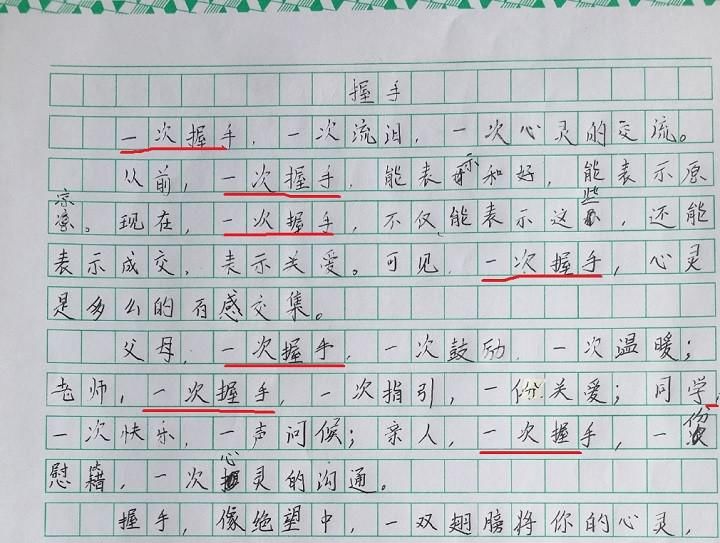 握手
一次握手，一次流泪，一次心灵的交流。
从前，一次握手，能表示和好，能表示原
谅。现在，一次握手，不仅能表示这些，还能
表示成交，表示关爱。可见，一次握手，心灵
是多么的百感交集。
父母，一次握手，一次鼓励，一次温暖；
老师，一次握手，一次指引，一份关爱；同学，
一次快乐，一声问候；亲人，一次握手，一份
慰藉，一次心灵的沟通。
握手，像绝望中，一双翅膀将你的心灵，